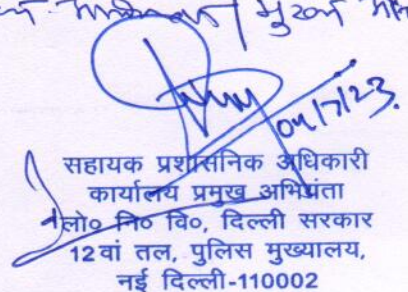 मुख्य
04/7/23.
सहायक प्रशासनिक अधिकारी
कार्यालय प्रमुख अभियंता
लो० नि० वि०, दिल्ली सरकार
12वां तल, पुलिस मुख्यालय,
नई दिल्ली-110002